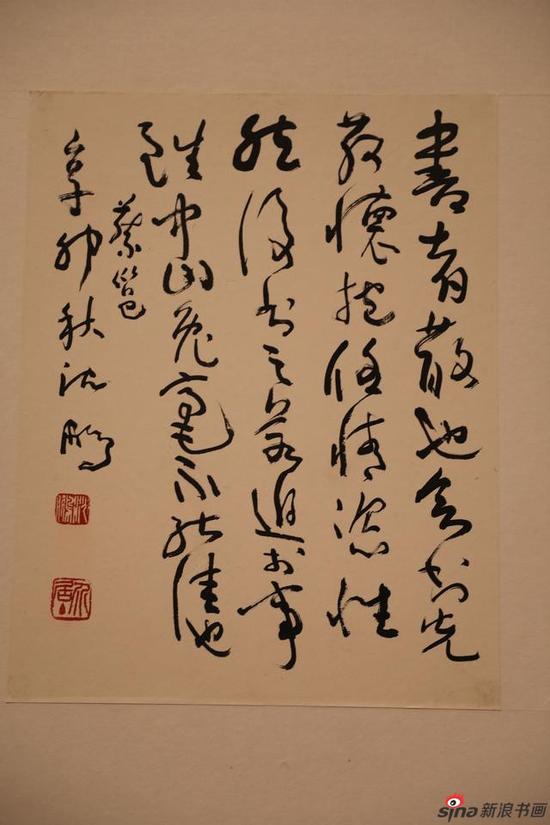 書者散也欲书先
散懷抱任情恣性
然後书之若迫於事
雖中山兔毫不能佳也
蔡邕
辛卯秋沈鵬
sina新浪书画